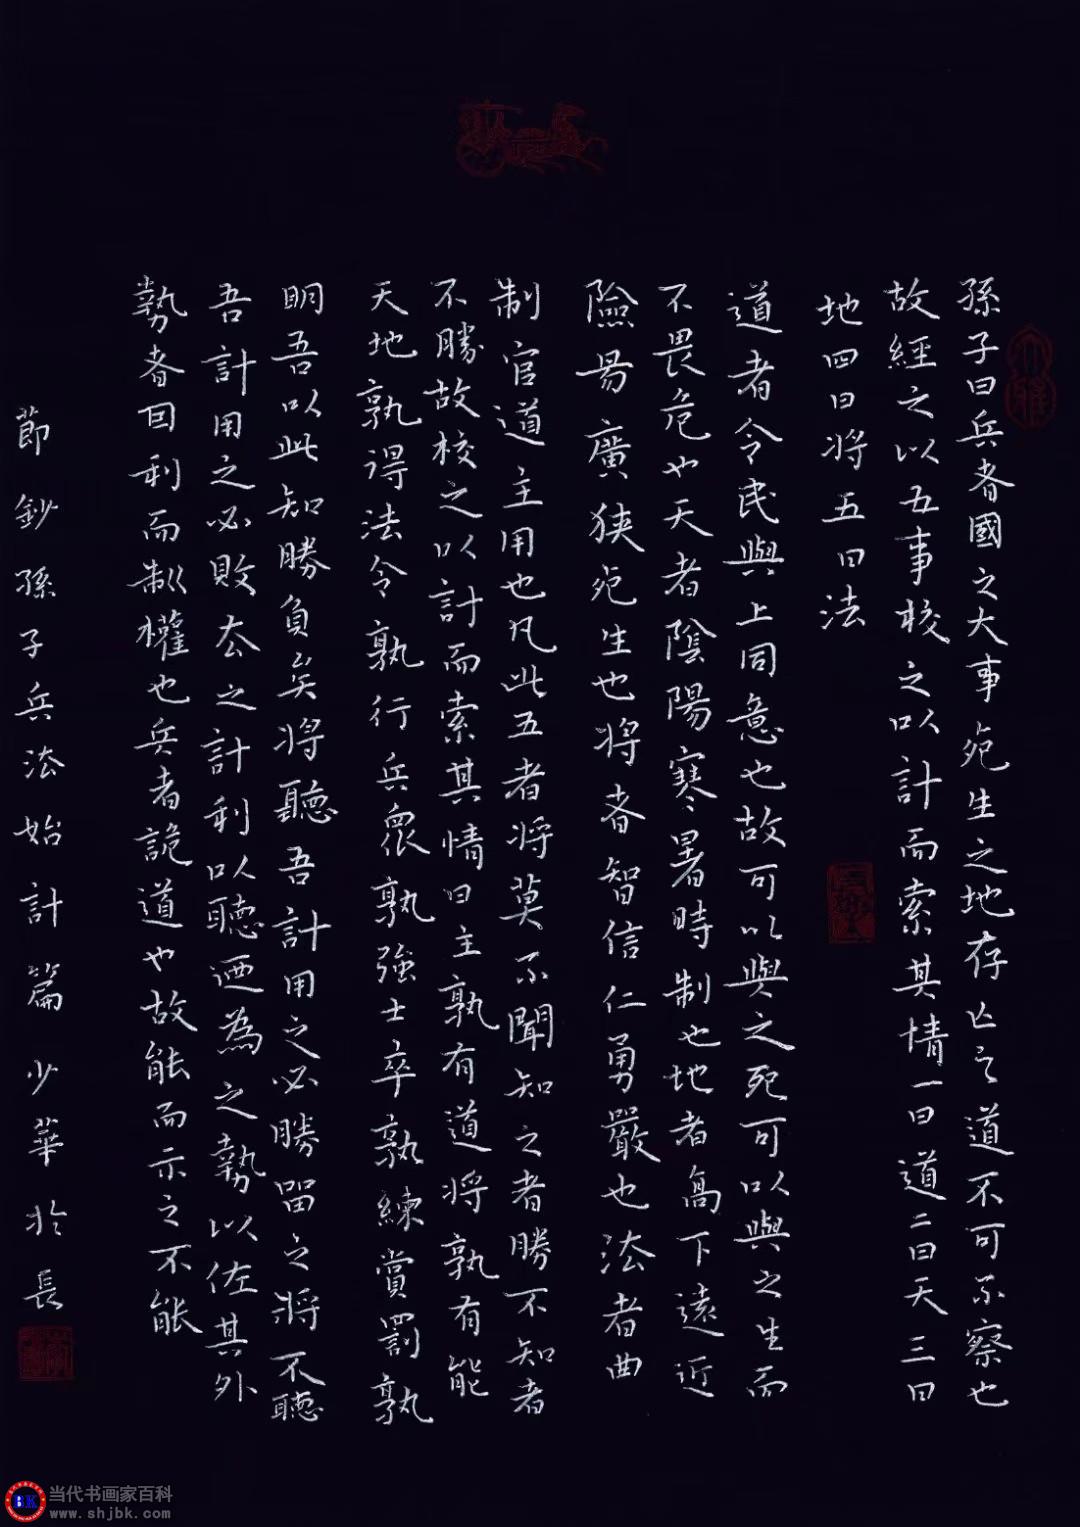 孫子曰兵者國之大事死生之地存亡之道不可不察也
故經之以五事校之以計而索其情一曰道二曰天三曰
地四曰將五曰法
道者令民與上同意也故可以與之死可以與之生而
不畏危也天者陰陽寒暑時制也地者高下遠近
險易廣狹死生也將者智信仁勇嚴也法者曲
制官道主用也凡此五者將莫不聞知之者勝不知者
不勝故校之以計而索其情曰主孰有道將孰有能
天地孰得法令孰行兵眾孰強士卒孰練賞罰孰
明吾以此知勝負矣將聽吾計用之必勝留之將不聽
吾計用之必敗去之計利以聽迺為之勢以佐其外
勢者因利而制權也兵者詭道也故能而示之不能
節鈔孫子兵法始計篇 少華於長
当代书画家百科
www.shjbk.com
BK